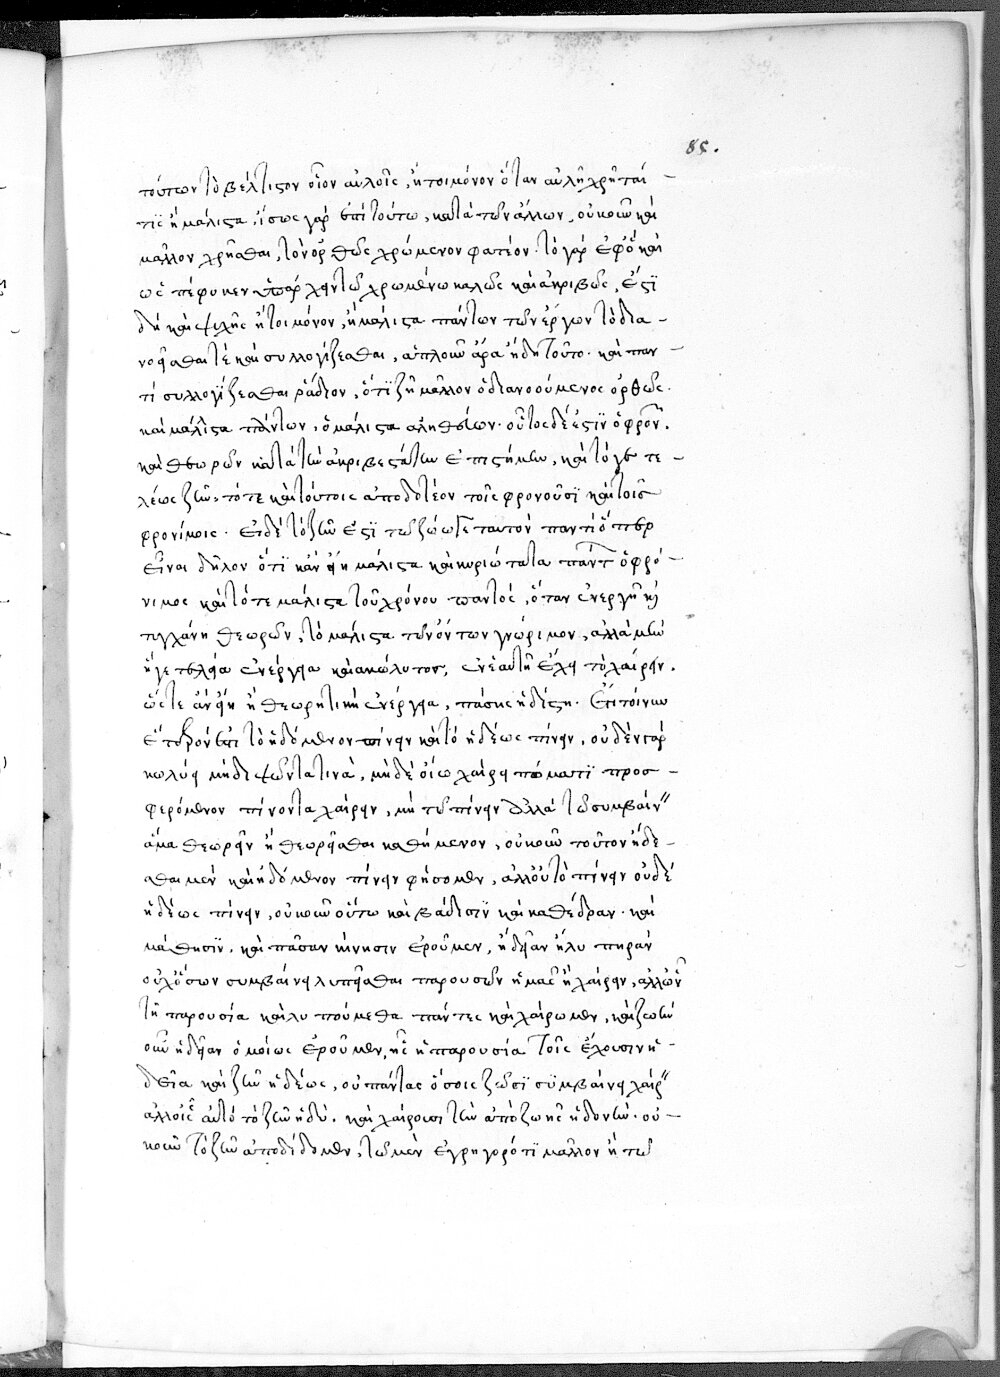 85.
τούτων τὸ βέλτιστον οἷον αὐλοῖς, ἤτοι μόνον ὅταν αὐλῇ χρῆταί
τις ἢ μάλιστα, ἴσως γὰρ ἐπὶ τούτω, κατὰ τῶν ἄλλων, οὐκοῦν καὶ
μᾶλλον χρῆσθαι, τὸν ὀρθῶς χρώμενον φατέον. τὸ γὰρ ἐφ' ὃ καὶ
ὡς πέφυκεν ὑπάρχειν τῶ χρωμένω καλῶς καὶ ἀκριβῶς, ἔστι
δὴ καὶ ψυχῆς ἤτοι μόνον, ἢ μάλιστα πάντων τῶν ἔργον τὸ δια-
νοεῖσθαι τὲ καὶ συλλογίζεσθαι, ἁπλοῦν ἄρα ἤδη τοῦτο. καὶ παν-
τὶ συλλογίζεσθαι ῥάδιον, ὅτι ζῆ μᾶλλον ὁ διανοούμενος ὀρθῶς.
καὶ μάλιστα πάντων, ὁ μάλιστα ἀληθεύων. οὗτος δέ ἐστιν ὁ φρονῶν.
καὶ θεωρῶν κατὰ τὴν ἀκριβεστάτην ἐπιστήμην, καὶ τό γε τε-
λέως ζῆν, τότε καὶ τούτοις ἀποδοτέον τοῖς φρονοῦσι καὶ τοῖς
φρονίμοις. εἰ δὲ τὸ ζῆν ἐστὶ τῶ ζώω γε ταυτὸν παντὶ ὅπερ
εἶναι δῆλον ὅτι κἂν εἴη μάλιστα καὶ κυριώτατα πάντ ὁ φρό-
νιμος καὶ τότε μάλιστα τοῦ χρόνου παντός, ὅταν ἐνεργῆ καὶ
τυγχάνη θεωρῶν, τὸ μάλιστα τῶν ὄντων γνώριμον, ἀλλὰ μὴν
ἥ γε τελεία ἐνέργεια καὶ ἀκώλυτος, ἐν ἑαυτῆ ἔχει τὸ χαίρειν.
ὥστε ἂν εἴη ἡ θεωρητικὴ ἐνέργεια, πάσης ἡδίστη. ἔτι τοίνυν
ἕτερόν ἐστι τὸ ἡδόμενον πίνειν καὶ τὸ ἡδέως πίνειν, οὐδὲν γὰρ
κωλύει μὴ διψῶντα τινὰ, μηδὲ οἵω χαίρει πόματι προσ-
φερόμενον πίνοντα χαίρειν, μὴ τῶ πίνειν ἀλλὰ τῶ συμβαίν
ἅμα θεωρεῖν ἢ θεωρεῖσθαι καθήμενον, οὐκοῦν τοῦτον ἥδε-
σθαι μὲν καὶ ἡδόμενον πίνειν φήσομεν, ἀλλ' οὐ τὸ πίνειν οὐδὲ
ἡδέως πίνειν, οὐκοῦν οὕτω καὶ βάδισιν καὶ καθέδραν. καὶ
μάθησιν, καὶ πᾶσαν κίνησιν ἐροῦμεν, ἡδεῖαν ἢ λυπηρὰν
οὐχ ὅσων συμβαίνει λυπεῖσθαι παρουσῶν ἡμᾶς ἢ χαίρειν, ἀλλ' ὧν
τῆ παρουσία καὶ λυπούμεθα πάντες καὶ χαίρωμεν, καὶ ζωὴν
οὖν ἡδεῖαν ὁμοίως ἐροῦμεν, ἧς ἡ παρουσία τοῖς ἔχουσιν ἡ-
δεῖα καὶ ζῆν ἡδέως, οὐ πάντας ὅσοις ζῶσι συμβαίνει χαίρ
ἀλλ' οἷς αὐτὸ τὸ ζῆν ἡδὺ. καὶ χαίρουσι τὴν ἀπὸ ζωῆς ἡδονήν. οὐ-
κοῦν τὸ ζῆν ἀποδίδομεν, τῶ μὲν ἐγρηγορότι μᾶλλον ἢ τῶ